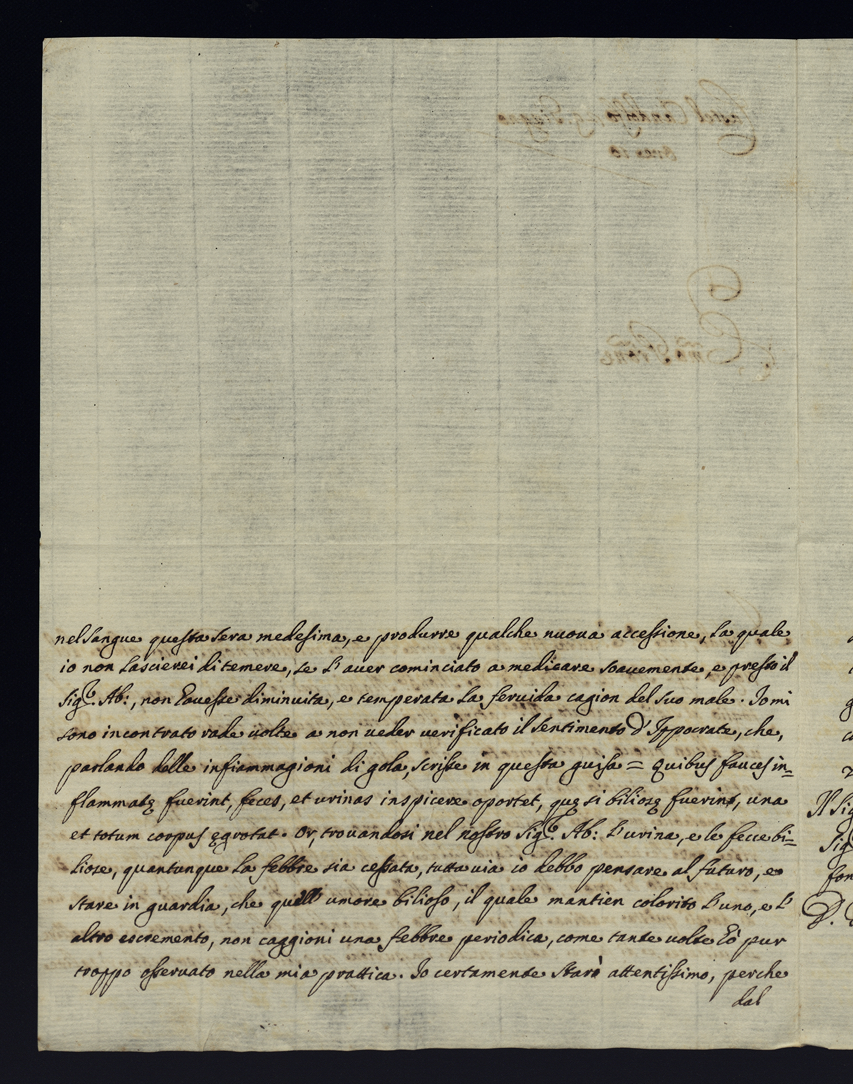 nel sangue questa sera medesima, e produrre qualche nuova accessione, la quale
io non lascierei di temere, se l'aver cominciato a medicare soavemente, e presto il
Sig.e Ab:, non avesse diminuita, e temperata la fervida cagion del suo male. Io mi
sono incontrato rade volte a non veder verificato il sentimento d'Ippocrate, che,
parlando delle infiammagioni di gola, scrisse in questa guisa = quibus fauces in=
flammatę fuerint, feces, et urinas inspicere oportet, quę si biliosę fuerint, una
et totum corpus ęgrotat. Or, trovandosi nel nostro Sig.e Ab: l'urina, e le fecce bi=
liose, quantunque la febbre sia cessata, tutta via io debbo pensare al futuro, e
stare in guardia, che quell umore bilioso, il quale mantien colorito l'uno, e l'
altro escremento, non caggioni una febbre periodica, come tante volte hò pur
troppo osservato nella mia prattica. Io certamente starò attentissimo, perche
dal